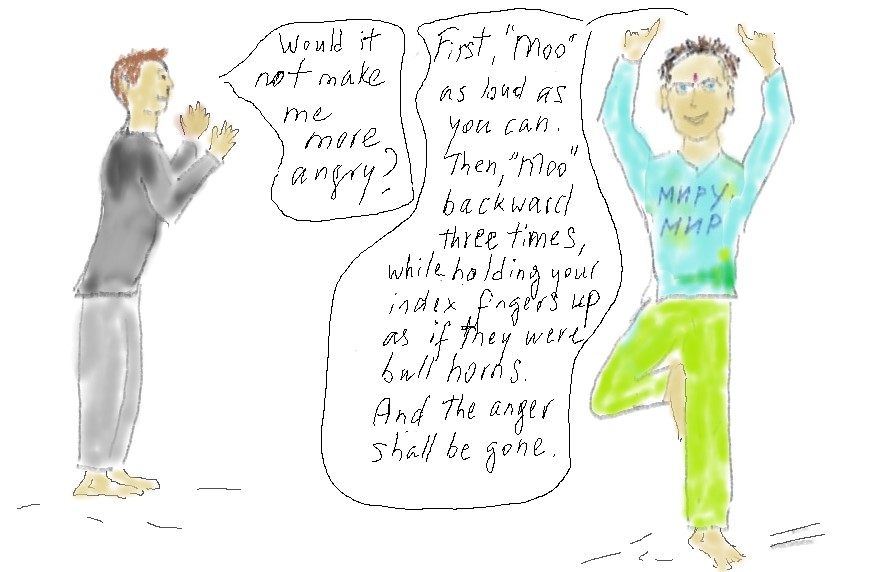 First, "Moo"
as loud as
you can.
Then, "Moo"
backward
three times,
while holding your
index fingers up
as if they were
bull horns.
And the anger
shall be gone.
Would it
not make
me
more
angry?
МИРУ
МИР